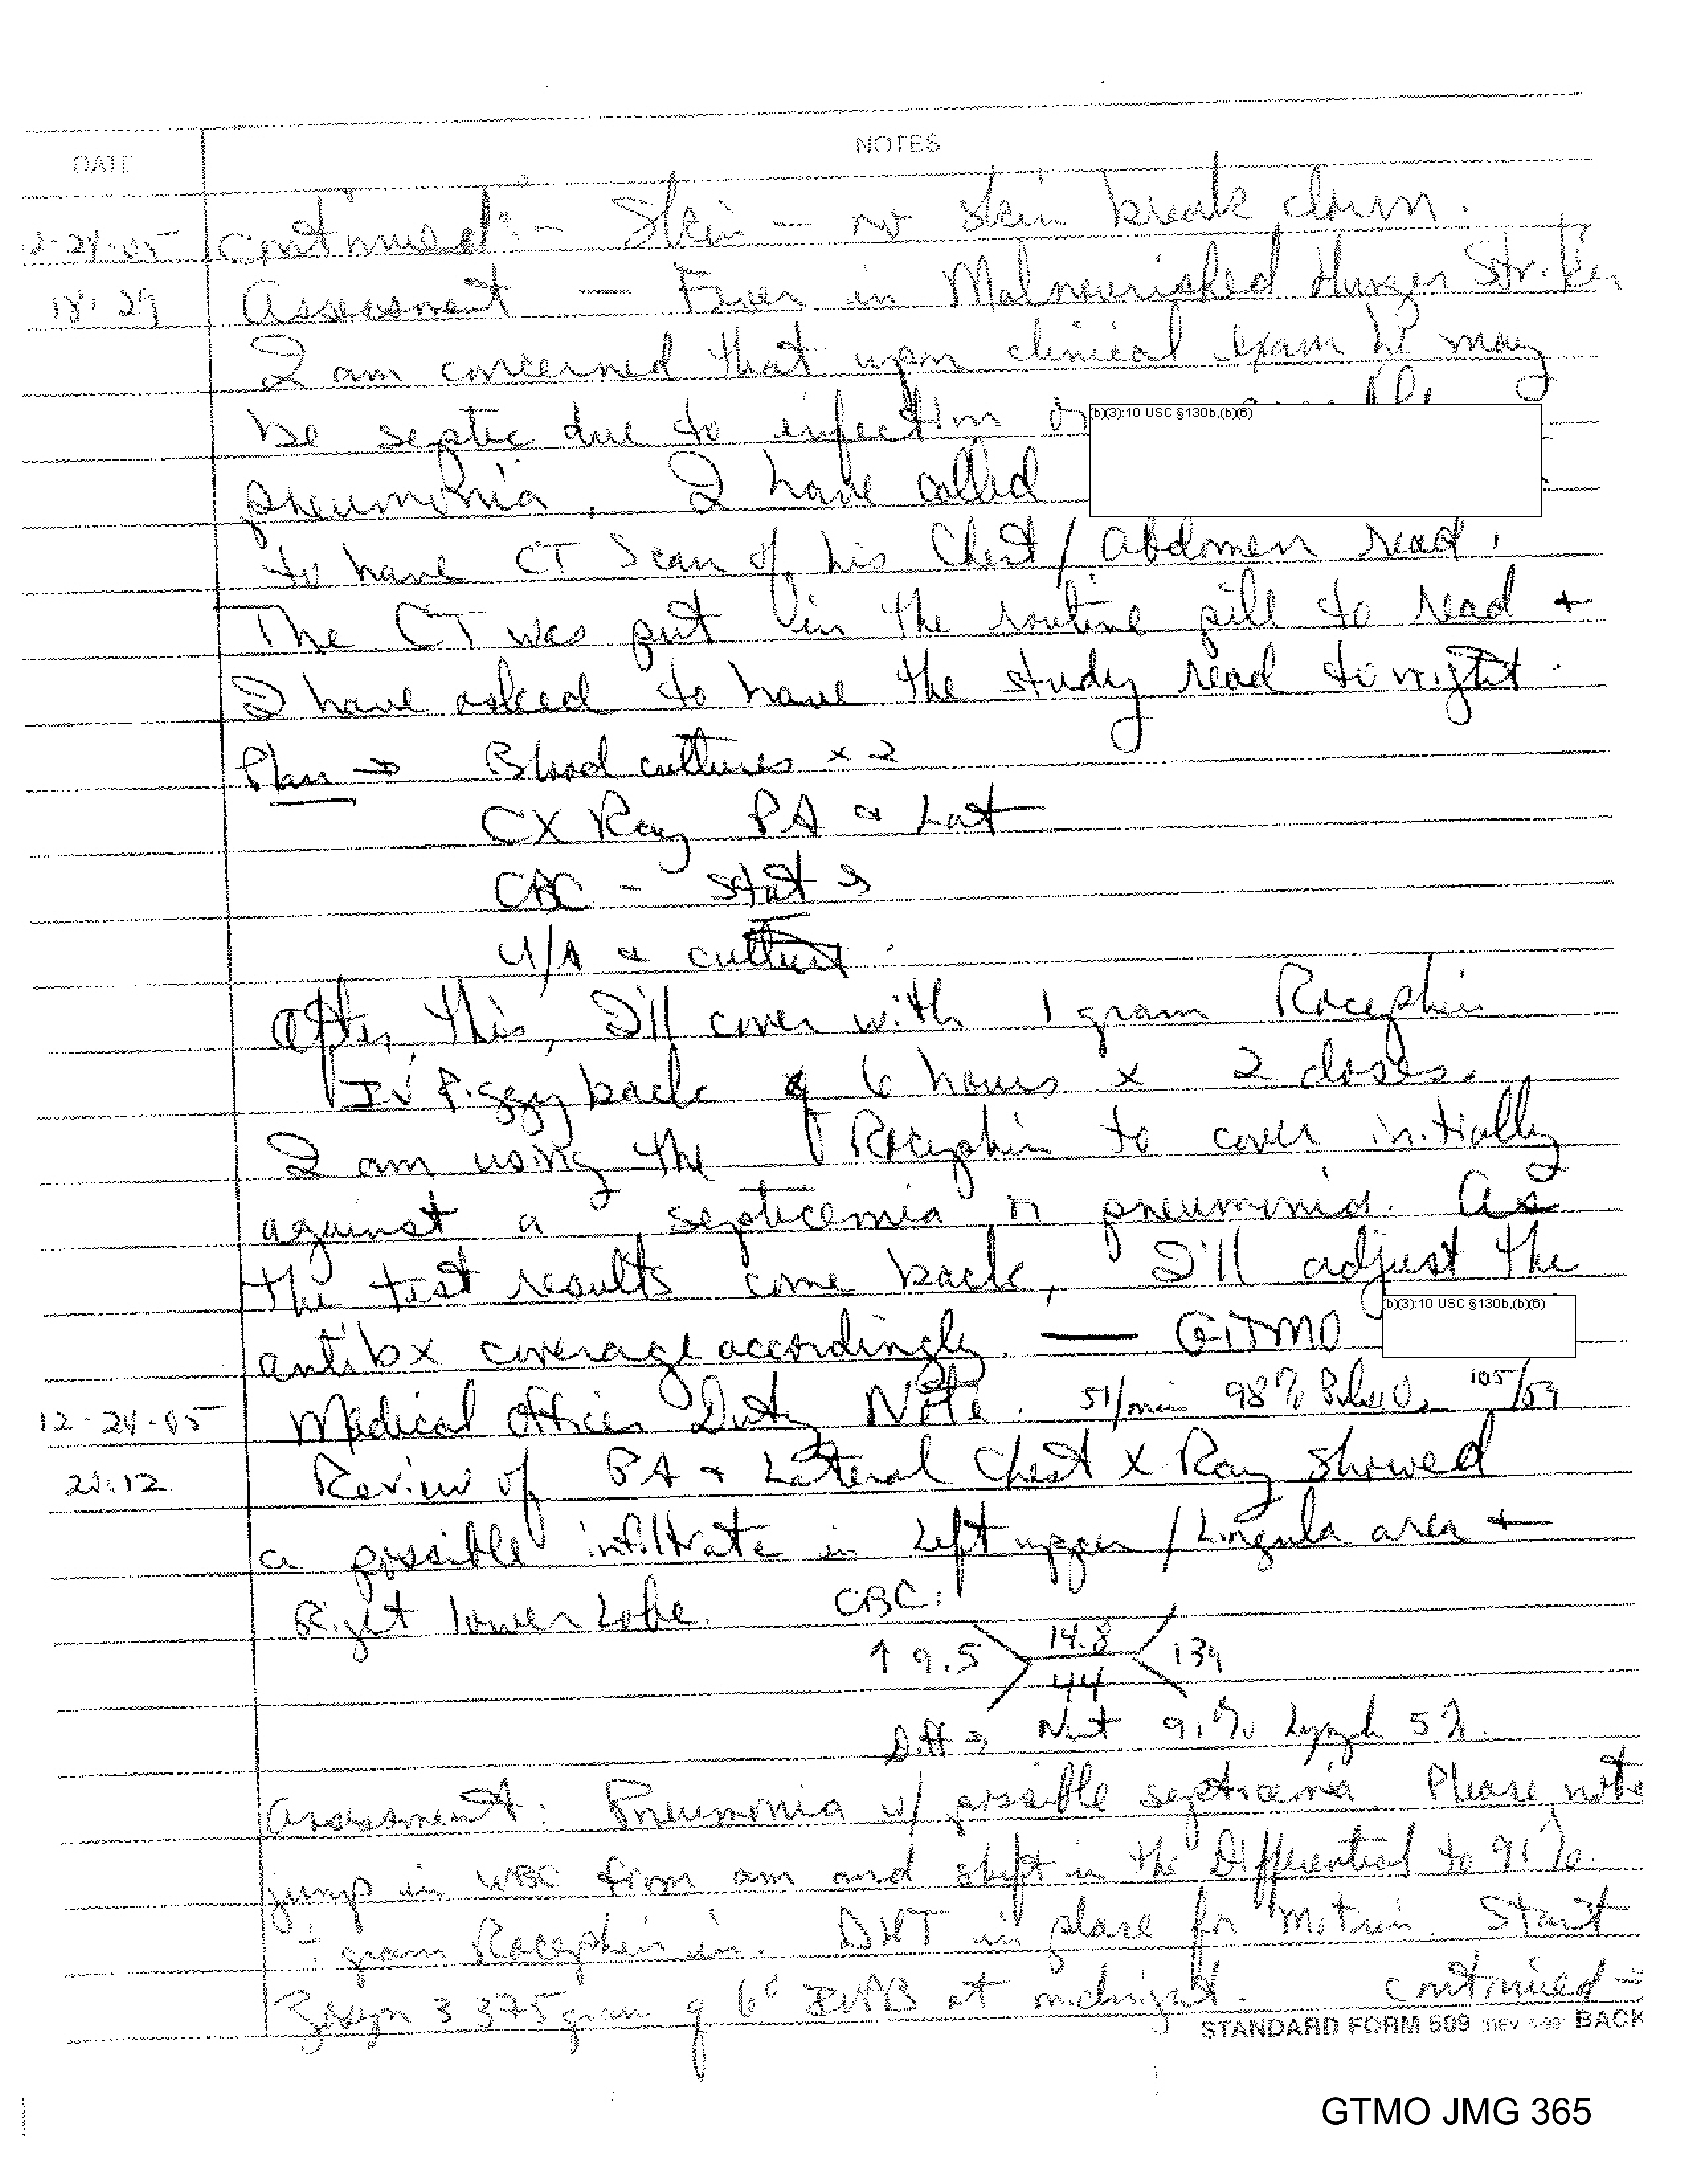 DATE NOTES
12-24-05 Continued:- Skin - no skin break down.
18:29 Assessment - Fever in Malnourished Hunger Striker
I am concerned that upon clinical exam he may
be septic due to infection or
(b)(3):10 USC §130b,(b)(6)
pneumonia. I have called
to have CT Scan of his Chest/Abdomen read.
The CT was put in the routine pill to read +
I have asked to have the study read tonight.
Plan → Blood cultures x 2
CX Ray PA & Lat
CBC - stat
U/A & culture.
After this, I'll cover with 1 gram Rocephin
IV Piggy back q 6 hours x 2 doses.
I am using the Rocephin to cover initially
against a septicemia or pneumonia. As
the test results come back, I'll adjust the
antibx coverage accordingly. — GITMO
(b)(3):10 USC §130b,(b)(6)
12-24-05 Medical Officer Duty Note. 51/min 98% 105/59
21:12 Review of PA & Lateral Chest X-Ray showed
a possible infiltrate in Left upper/Lingula area +
Right lower Lobe. CBC:
↑ 9.5 14.8 139
44
Diff → Neut 91% Lymph 5%.
Assessment: Pneumonia w/ possible septicemia. Please note
jump in WBC from am and shift in the Differential to 91%.
gram Rocephin in. DHT in place for Motrin. Start
Zosyn 3.375 gram q 6° IVPB at midnight. continued -
STANDARD FORM 509 BACK
GTMO JMG 365